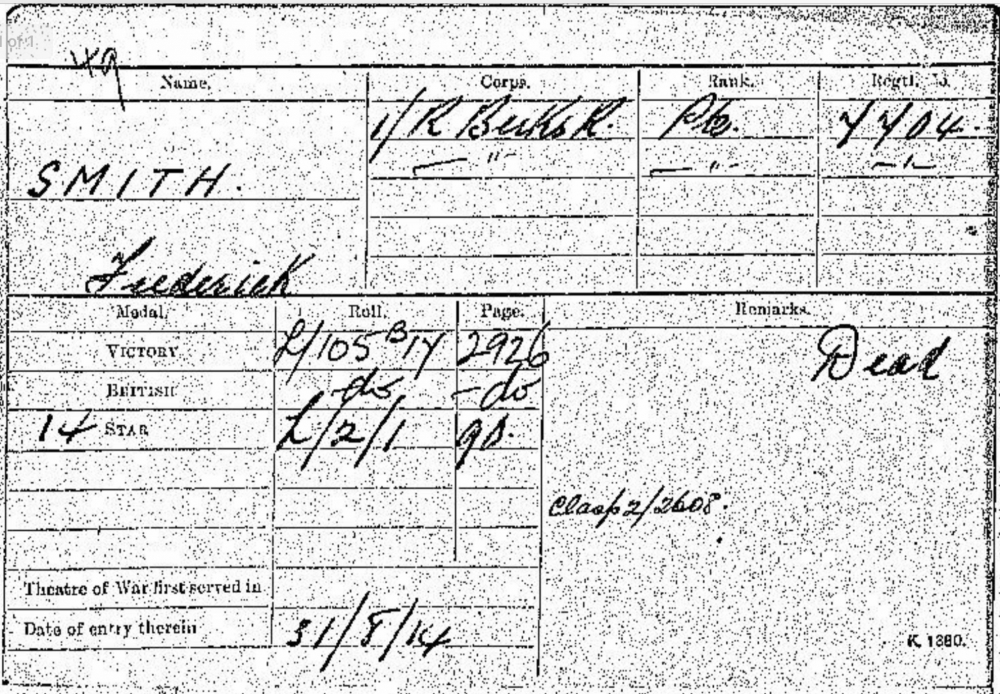 49
Name. Corps. Rank. Regtl. No.
1/R Berks R. Pte. 7704.
SMITH. — " — — " — — " —
Frederick
Medal. Roll. Page. Remarks.
VICTORY L/105 B17 2926 Dead
BRITISH - do - do
14 STAR L/2/1 90.
Clasp 2/2608.
Theatre of War first served in
Date of entry therein 31/8/14
K. 1380.